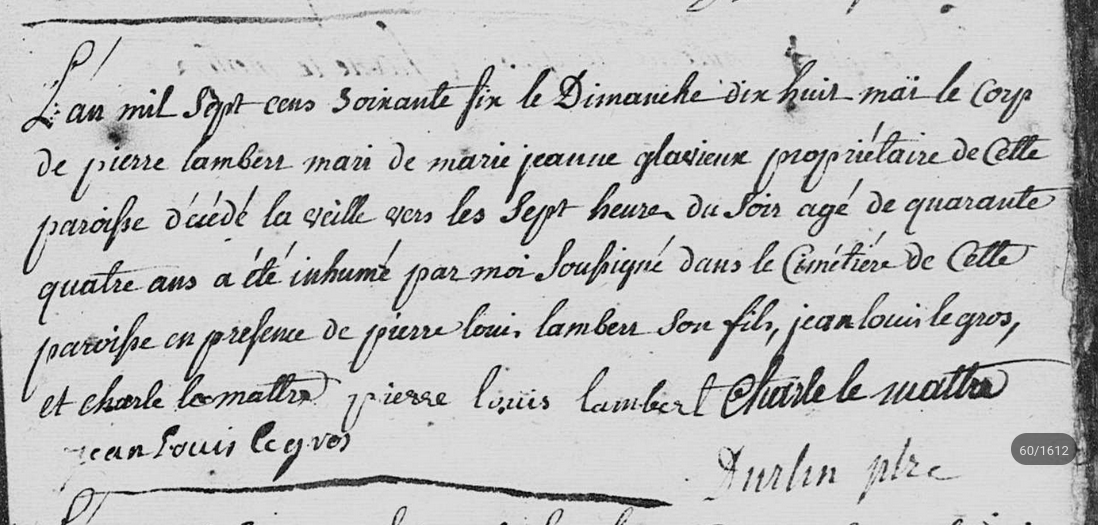 L'an mil Sept cens Soixante six le Dimanche dix huit maï le Corp
de pierre lambert mari de marie jeanne glavieux propriétaire de Cette
paroisse décédé la veille vers les Sept heures du Soir agé de quarante
quatre ans a été inhumé par moi Soussigné dans le Cimétiére de Cette
paroisse en presence de pierre louis lambert Son fils, jean louis le gros,
et charle le mattre pierre louis lambert Charle le mattre
jean louis le gros
Durlin ptre
60/1612